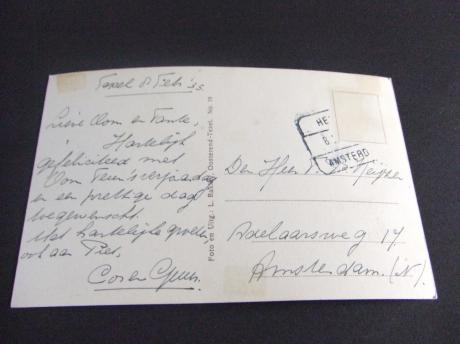 Texel 8 Febr '55
Lieve Oom en Tante,
Hartelijk
gefeliciteerd met
Oom Teun's verjaardag
en een prettige dag
toegewenscht.
Met hartelijke groeten,
ook aan Piet,
Cor en
Foto en Uitg.: L. Oosterend-Texel. No. 19
AMSTERD
Den Heer
Adelaarsweg 17
Amsterdam. (N).